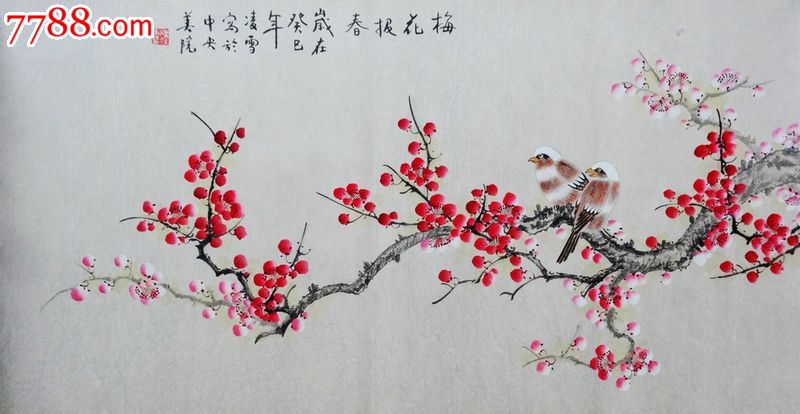 7788.com
梅
花
报
春
歲在
癸巳
年
凌雪
写於
中央
美院